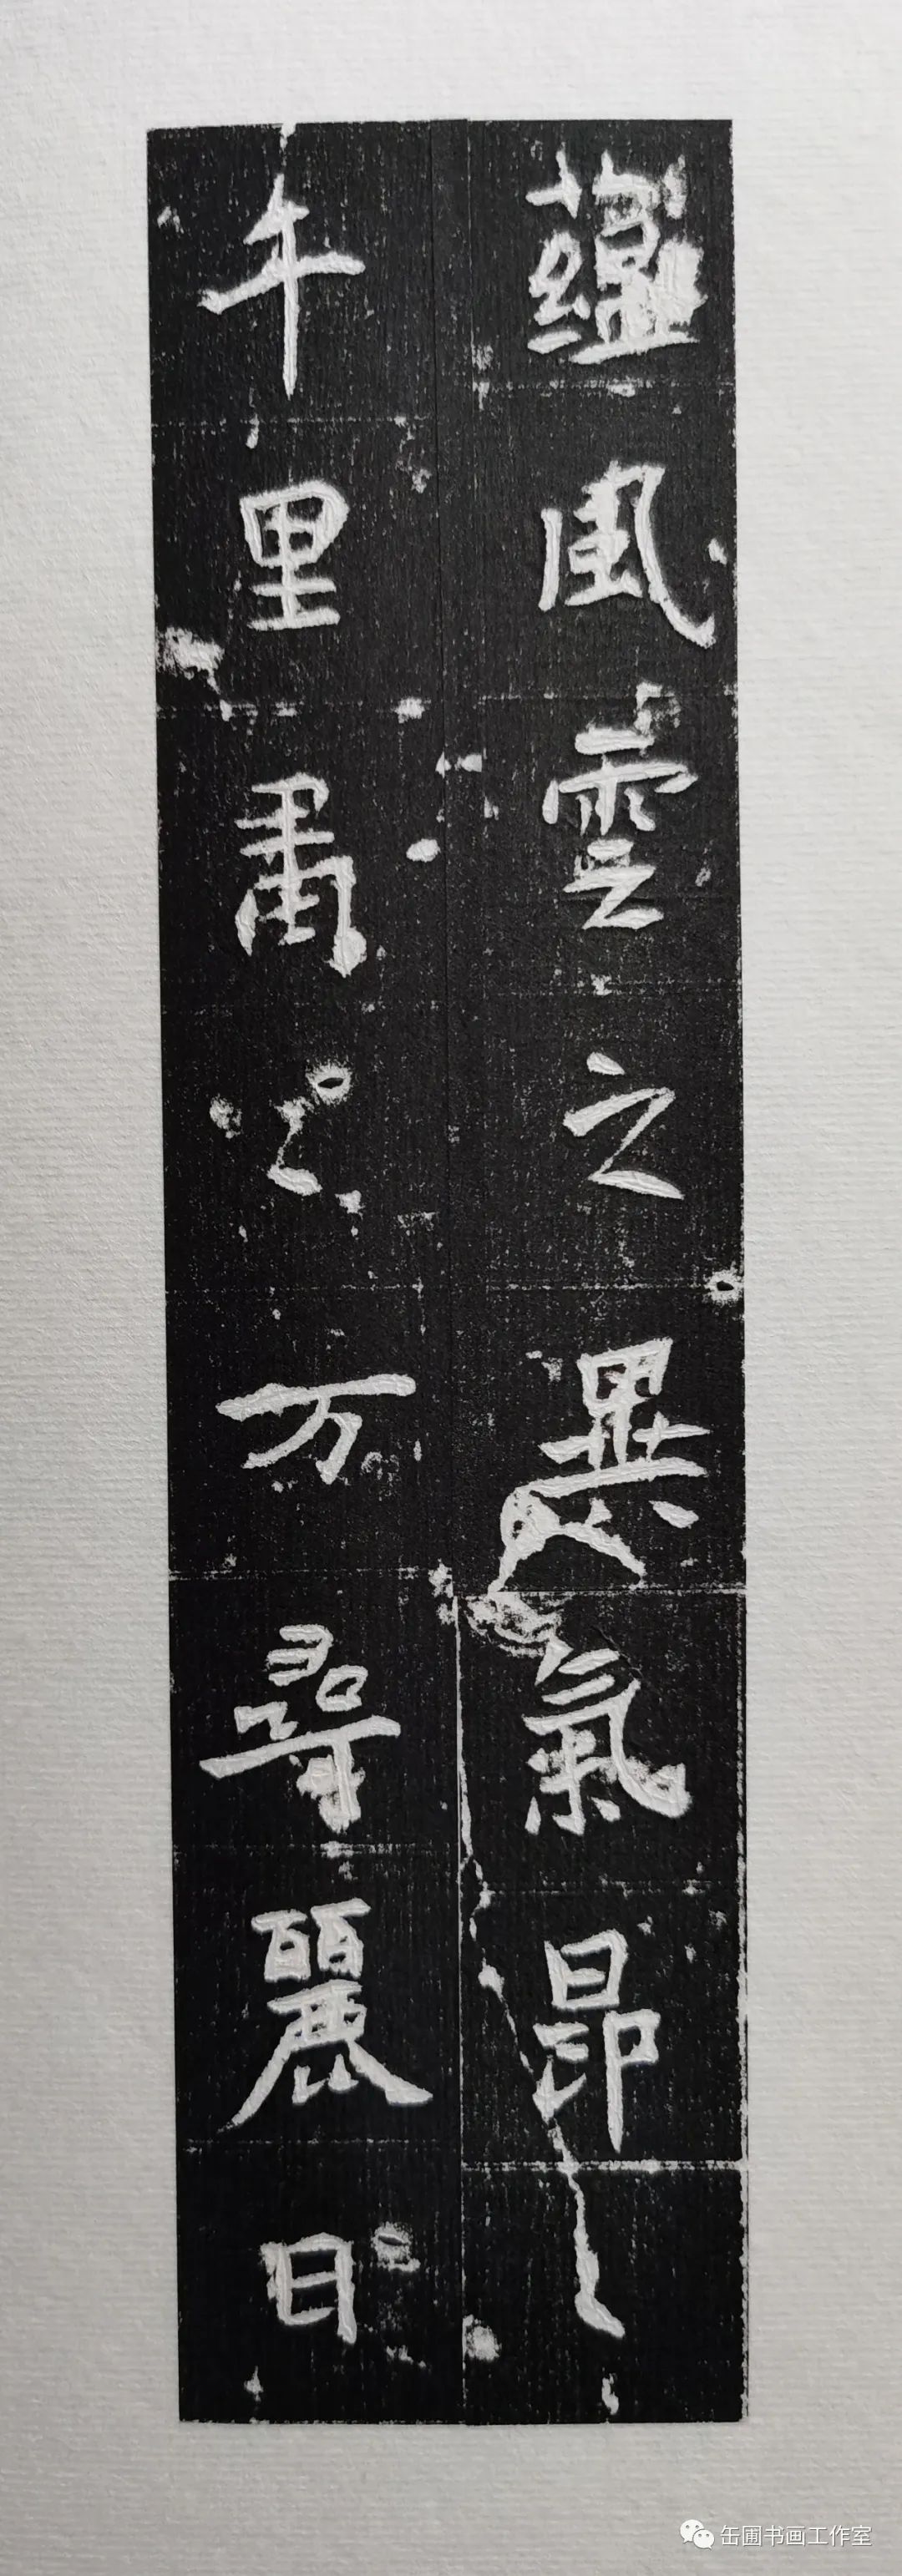 蘊風雲之異氣昂〻
千里肅〻万尋麗日
缶圃书画工作室